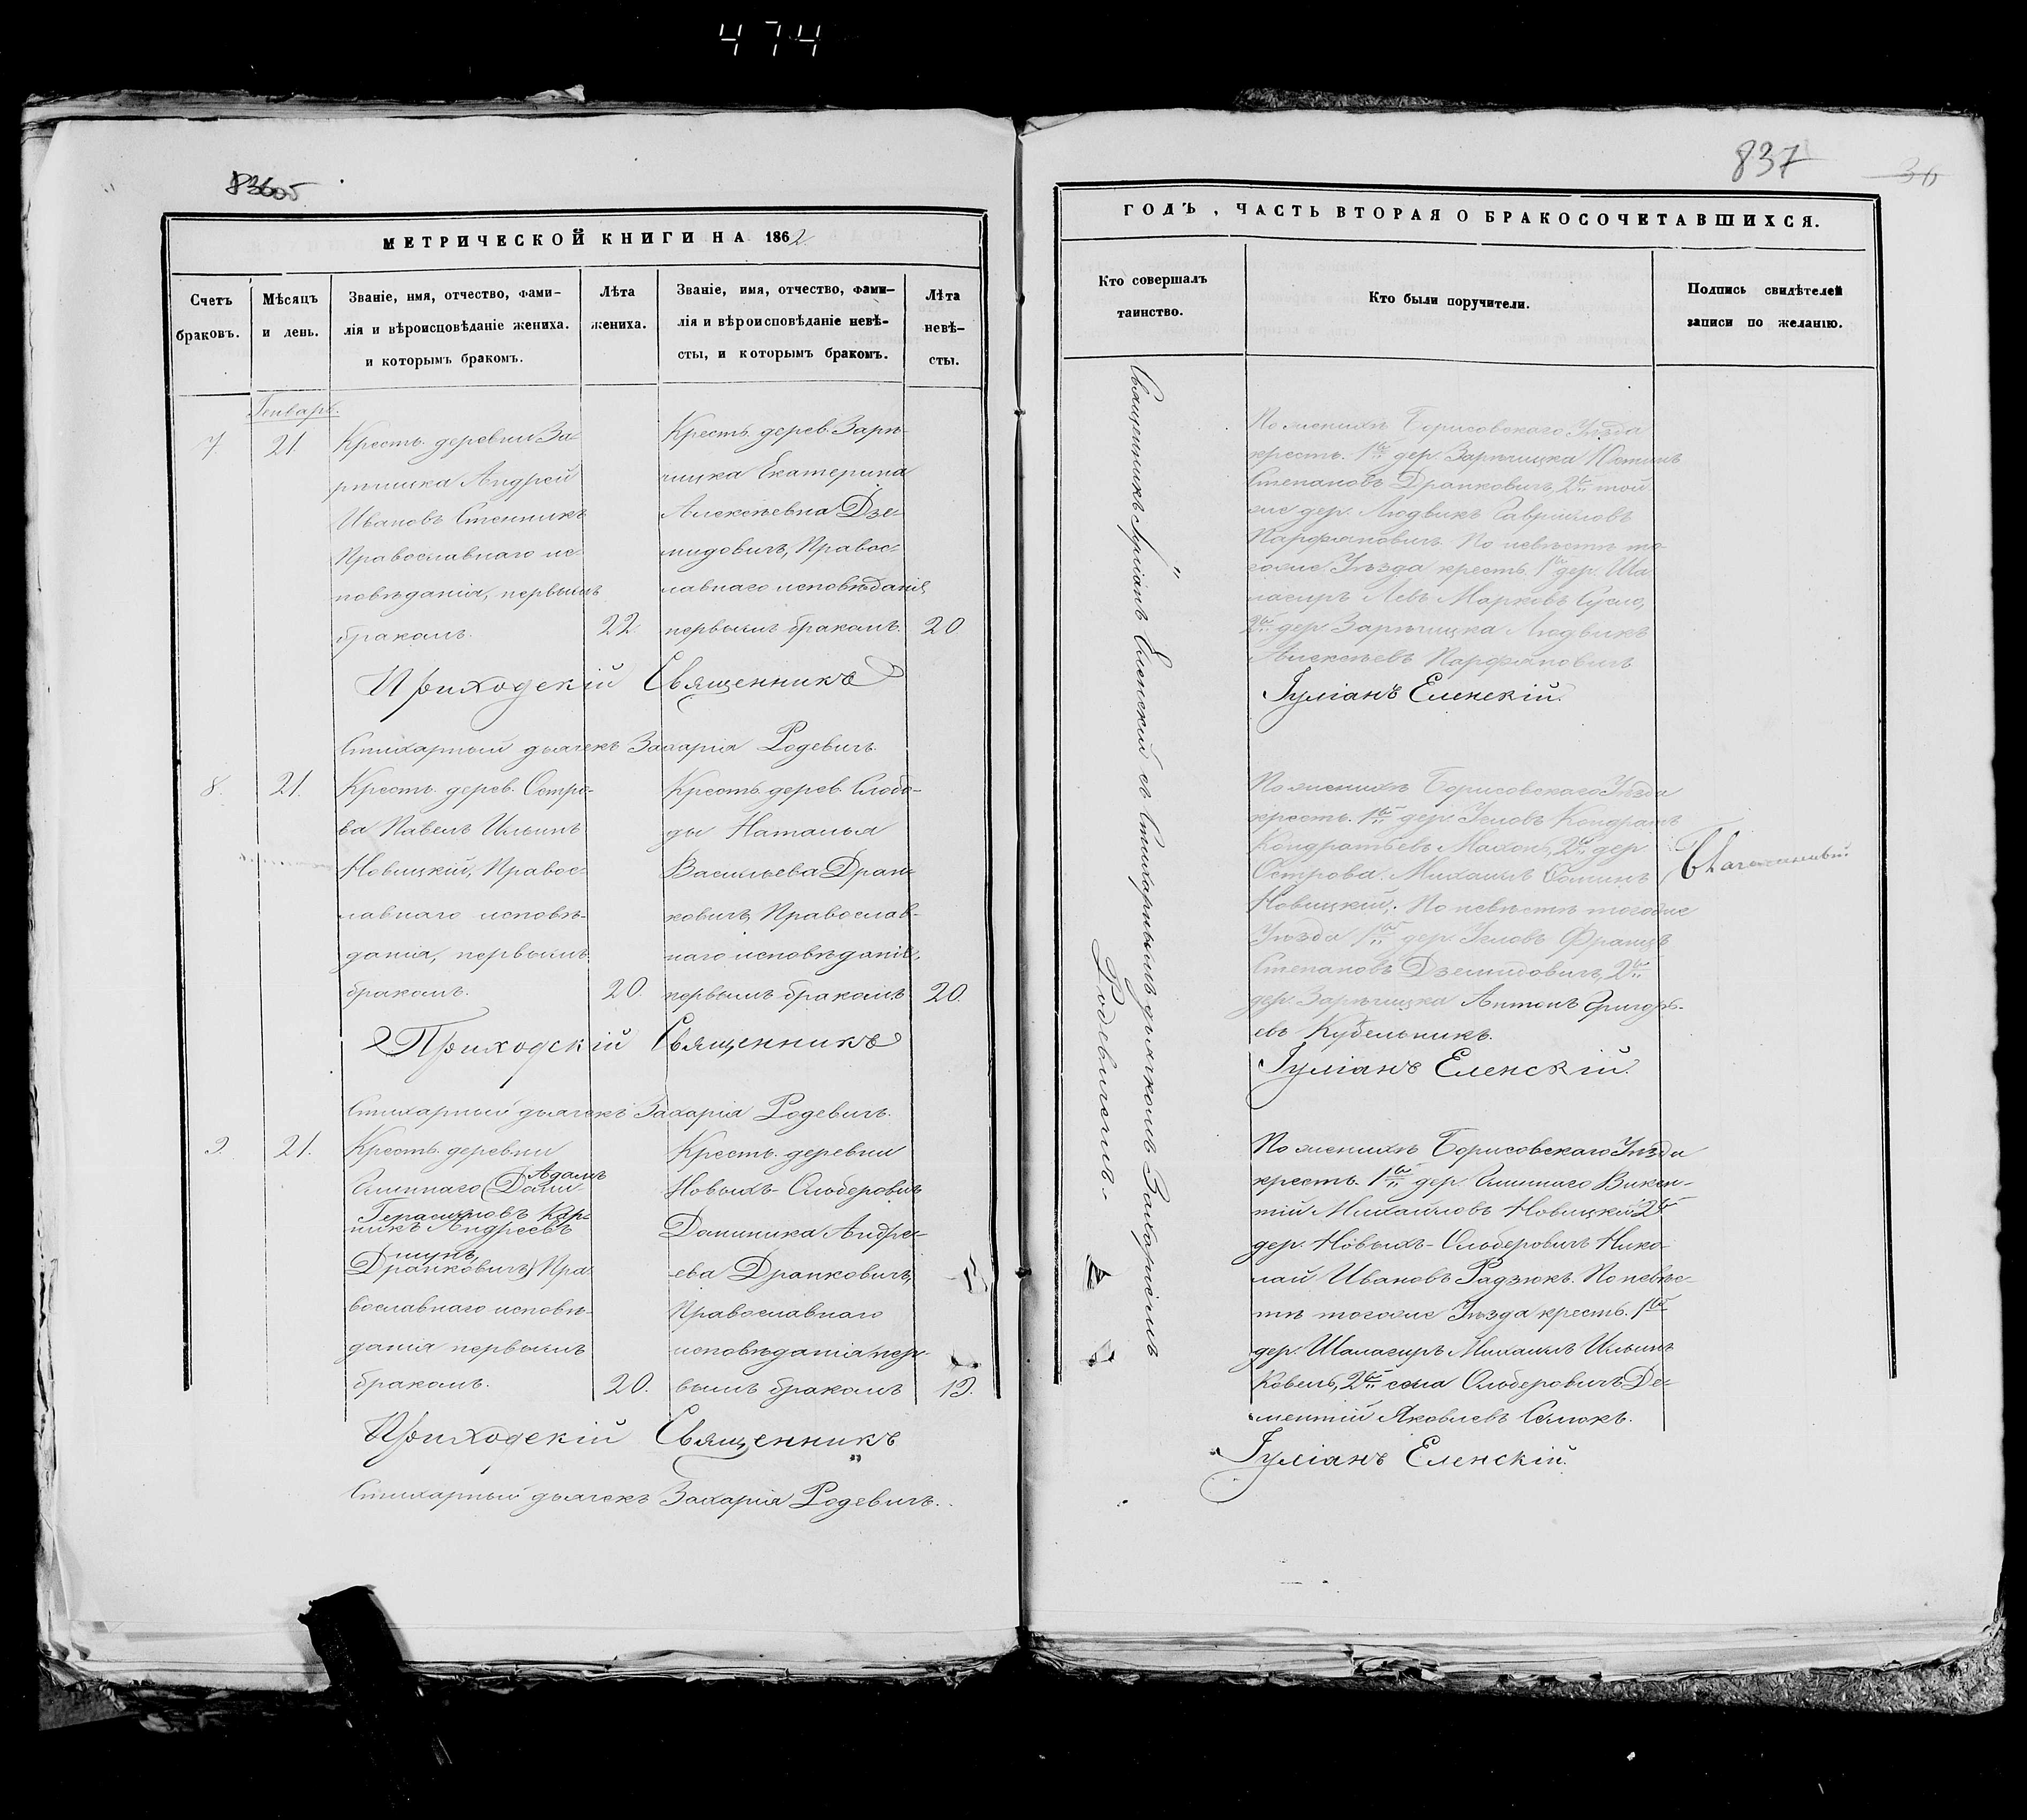 474
837
36
МЕТРИЧЕСКОЙ КНИГИ НА 1862
Счетъ браковъ.
Мѣсяцъ и день.
Званіе, имя, отчество, фами-
лія и вѣроисповѣданіе жениха.
и которымъ бракомъ.
Лѣта жениха.
Званіе, имя, отчество, фами-
лія и вѣроисповѣданіе невѣ-
сты, и которымъ бракомъ.
Лѣта невѣ-
сты.
Генваръ.
7. 21.
Крестъ. деревни За-
рѣчицка Андрей
Ивановъ
Православнаго ис-
повѣданія, первымъ
бракомъ. 22.
Крестъ. дерев. Зарѣ-
чицка Екатерина
Алексѣевна Дзе-
мидовичъ, Правос-
лавнаго исповѣданія,
первымъ бракомъ. 20
Приходскій Священникъ
Стихарный дьячекъ Захарія Родевичъ.
8. 21.
Крестъ. дерев. Остро-
ва Павелъ Ильинъ
Новицкій, Правос-
лавнаго исповѣ-
данія, первымъ
бракомъ. 20.
Крестъ. дерев. Слобо-
ды Наталья
Васильева Дран-
ковичъ, Православ-
наго исповѣданія,
первымъ бракомъ 20.
Приходскій Священникъ
Стихарный дьячекъ Захарія Родевичъ.
9. 21.
Крестъ. деревни
Адамъ
Герасимовъ Кар-
никъ Андреевъ
Дранковичъ) Пра-
вославнаго исповѣ-
данія первымъ
бракомъ. 20.
Крестъ. деревни
Новыхъ-Ольберовичъ
Доминика Андре-
ева Дранковичъ,
Православнаго
исповѣданія, пер-
вымъ бракомъ 19.
Приходскій Священникъ
Стихарный дьячекъ Захарія Родевичъ.
ГОДЪ, ЧАСТЬ ВТОРАЯ О БРАКОСОЧЕТАВШИХСЯ.
Кто совершалъ
таинство.
Кто были поручители.
Подпись свидѣтелей
записи по желанію.
Священникъ Іуліанъ Еленскій съ Стихарнымъ дьячкомъ Захаріемъ
Родевичемъ.
По женихѣ Борисовскаго Уѣзда
крестъ. 1й дер. Зарѣчицка
Степановъ Дранковичъ, 2й той
же дер. Людвикъ Гавриловъ
Парфяновичъ. По невѣстѣ то-
гоже Уѣзда крестъ. 1й дер. Ша-
лагиръ Левъ Марковъ Сусло,
2й дер. Зарѣчицка Людвикъ
Алексѣевъ Парфяновичъ
Іуліанъ Еленскій.
По женихѣ Борисовскаго Уѣзда
крестъ. 1й дер. Кондратъ
Кондратьевъ Махонь, 2й дер.
Острова Михаилъ Фоминъ
Новицкій. По невѣстѣ тогоже
Уѣзда 1й дер. Францъ
Степановъ Дземидовичъ, 2й
дер. Зарѣчицка Антонъ Григорь-
евъ Кудельникъ.
Іуліанъ Еленскій.
По женихѣ Борисовскаго Уѣзда
крестъ. 1й дер. Викен-
тій Михайловъ Новицкій 2й
дер. Новыхъ-Ольберовичъ Нико-
лай Ивановъ Радзюкъ. По невѣс-
тѣ тогоже Уѣзда крестъ. 1й
дер. Шалагиръ Михаилъ Ильинъ
Ковель, 2й села Ольберовичъ Де-
ментій Яковлевъ Селюкъ.
Іуліанъ Еленскій.